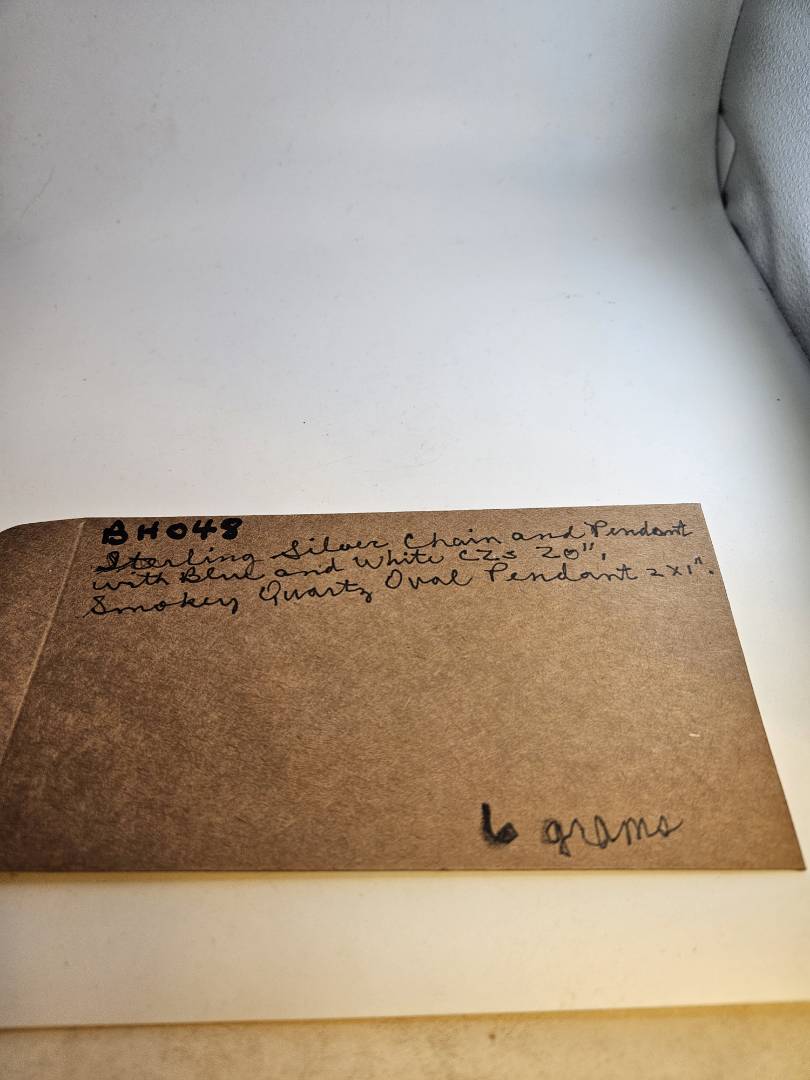 BH048
Sterling Silver Chain and Pendant
with Blue and White CZs 20",
Smokey Quartz Oval Pendant 2x1".
6 grams